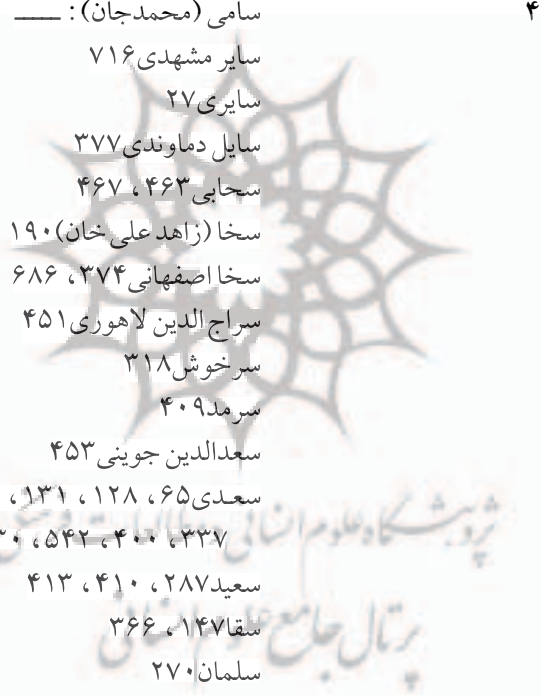 ۴
سامی (محمدجان): ــــــ
سایر مشهدی۷۱۶
سایری۲۷
سایل دماوندی۳۷۷
سحابی۴۶۳، ۴۶۷
سخا (زاهد علی خان)۱۹۰
سخا اصفهانی۳۷۴، ۶۸۶
سراج الدین لاهوری۴۵۱
سرخوش۳۱۸
سرمد۴۰۹
سعدالدین جوینی۴۵۳
سعدی۶۵، ۱۲۸، ۱۳۱،
۳۳۷، ۴۰۰، ۵۴۲،
سعید۲۸۷، ۴۱۰، ۴۱۳
سقا۱۴۷، ۳۶۶
سلمان۲۷۰
پژوهشگاه علوم انسانی و مطالعات فرهنگی
پرتال جامع علوم انسانی